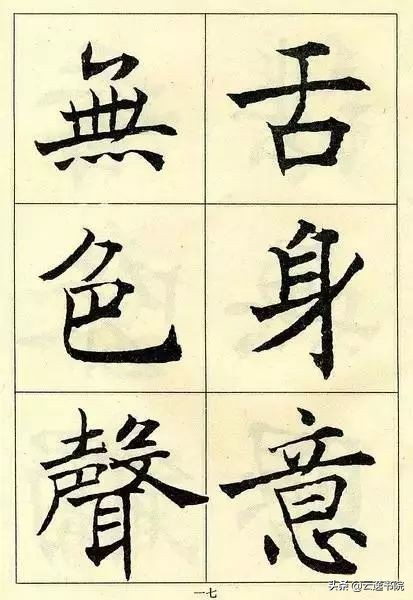 舌身意
無色聲
一七
头条@云逸书院